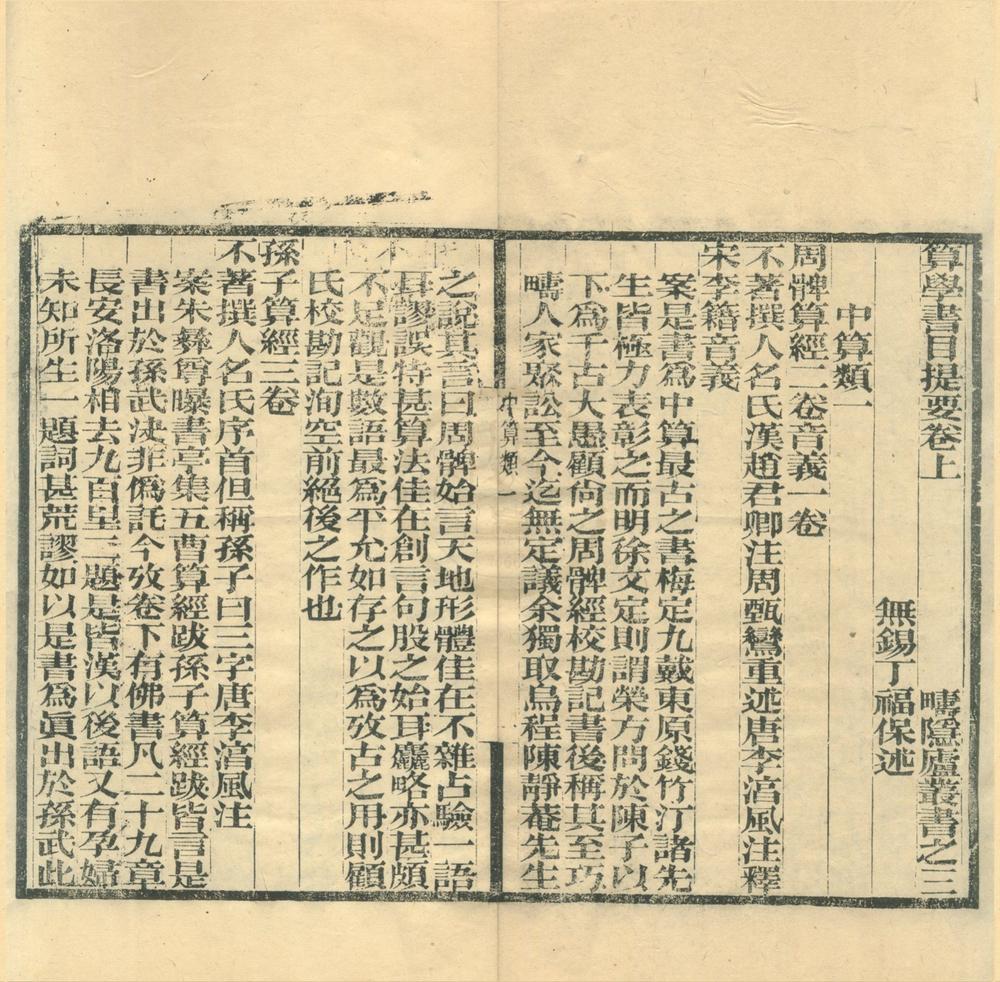 算學書目提要卷上
疇隱廬叢書之三
無錫丁福保述
中算類一
周髀算經二卷音義一卷
不著撰人名氏漢趙君卿注周甄鸞重述唐李淳風注釋
宋李籍音義
案是書爲中算最古之書梅定九戴東原錢竹汀諸先
生皆極力表彰之而明徐文定則謂榮方問於陳子以
下爲千古大愚顧尚之周髀經校勘記書後稱其至巧
疇人家聚訟至今迄無定議余獨取烏程陳靜菴先生
中算類 一
之說其言曰周髀始言天地形體佳在不雜占驗一語
耳謬誤特甚算法佳在創言句股之始耳麤略亦甚頗
不足觀是數語最爲平允如存之以爲攷古之用則顧
氏校勘記洵空前絕後之作也
孫子算經三卷
不著撰人名氏序首但稱孫子曰三字唐李淳風注
案朱彝尊曝書亭集五曹算經跋孫子算經跋皆言是
書出於孫武決非僞託今攷卷下有佛書凡二十九章
長安洛陽相去九百里二題是皆漢以後語又有孕婦
未知所生一題詞甚荒謬如以是書爲眞出於孫武此